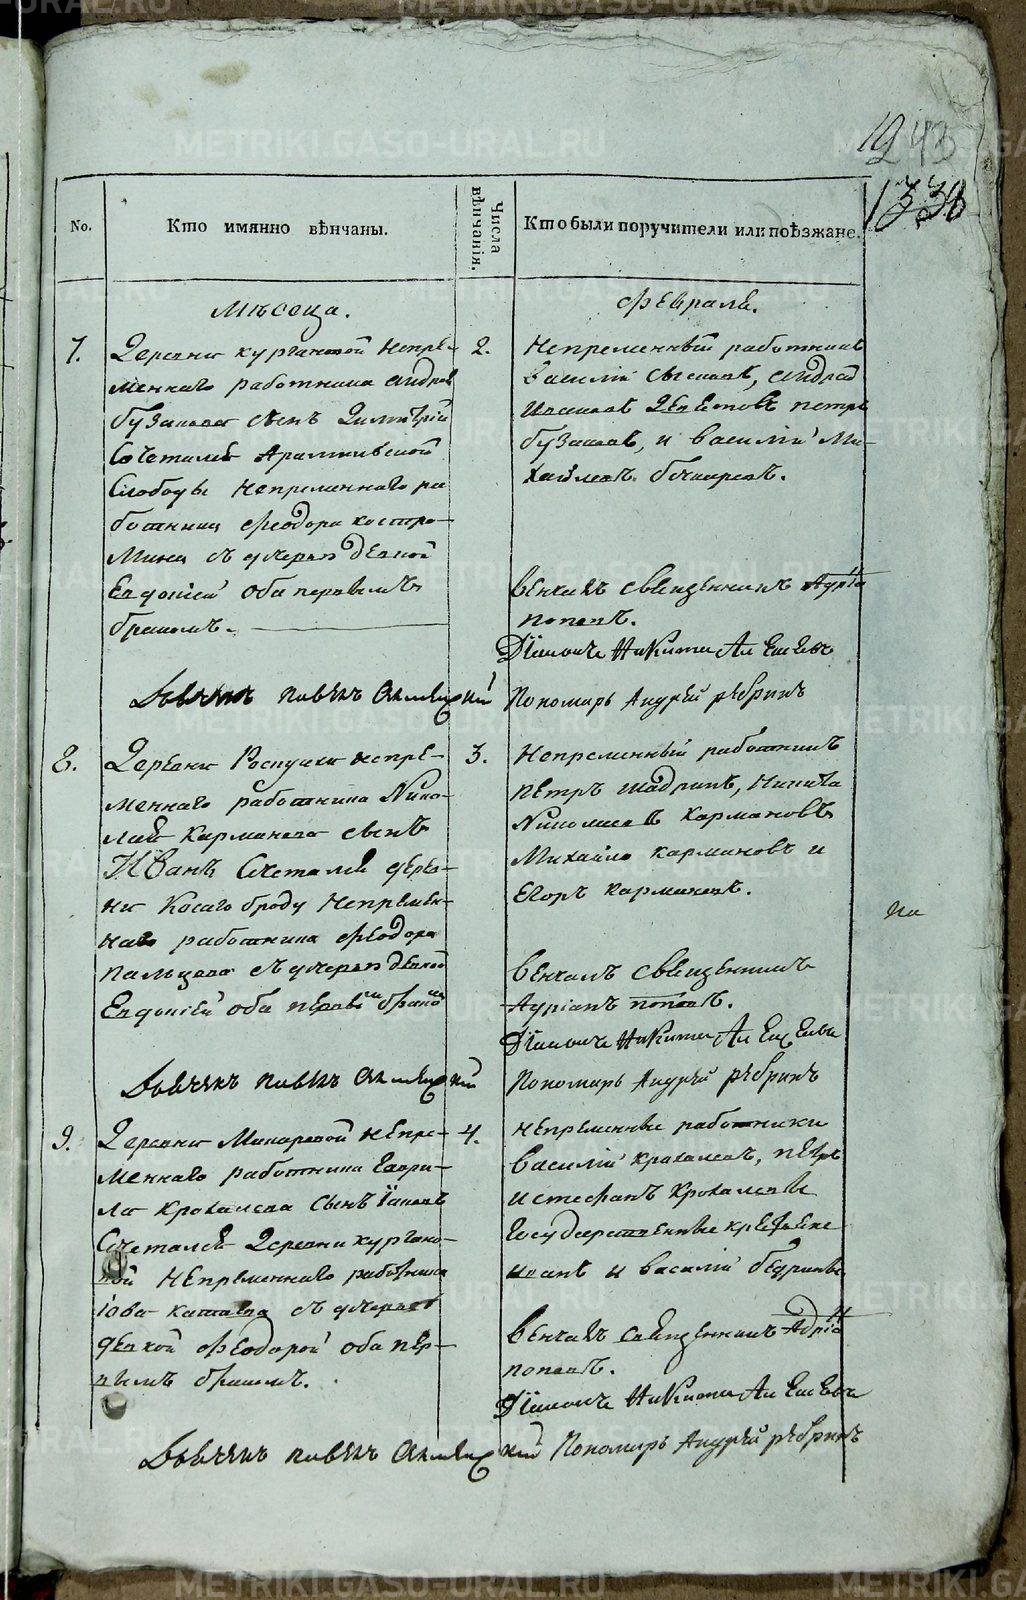 1243
1330
No.
Кто имянно вѣнчаны.
Числа вѣнчанія.
Кто были поручители или поѣзжане.
Мѣсеца.
Февраля.
7.
Деревни кургановой непре-
меннаго работника Андрея
бузанова сынъ Димитрій
Сочетался Арамилской
Слободы непременнаго ра
ботника Феодора костро-
мина съ дочерью девкой
Евдокіей оба первымъ
бракомъ.
2.
Непременный работникъ
Василій андрей
петръ
бузановъ, и василій Ми-
хайловъ
Венчалъ Священникъ Адріа
поповъ.
Діаконъ Никита
Дьячекъ павелъ
Пономарь Андрей рѣбринъ
8.
Деревни Роспуски непре-
меннаго работника Нико-
лая Карманова сынъ
Иванъ Сочетался дерев-
ни Косаго броду Непремен-
наго работника Феодора
пальцова съ дочерью девкой
Евдокіей оба первымъ бракомъ
3.
Непременный работникъ
петръ шадринъ, Никита
Николаевъ Кармановъ
Михайло кармановъ и
Егоръ кармановъ.
Венчалъ Священникъ
Адріанъ поповъ.
Діаконъ Никита
Дьячекъ павелъ
Пономарь Андрей рѣбринъ
на
9.
Деревни Макаровой непре-
меннаго работника Гаври-
ла крохалева сынъ Іаковъ
Сочетался Деревни кургано-
вой Непременнаго работника
іова катаева съ дочерью
девкой Феодорой оба пер-
вымъ бракомъ.
4.
непременные работники
Василій крохалевъ, петръ
и стефанъ крохалевы
Государственные крестьяне
иванъ и василій бедрины
Венчалъ священникъ Адріа
поповъ.
Діаконъ Никита
Дьячекъ павелъ
Пономарь Андрей рѣбринъ
METRIKI.GASO-URAL.RU